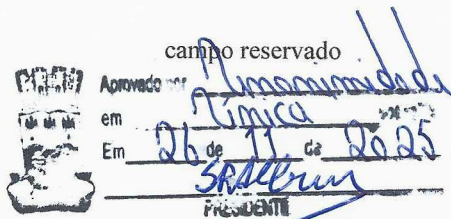 campo reservado
Aprovado por Unanimidade
em Única
Em 26 de 11 de 2025
PRESIDENTE